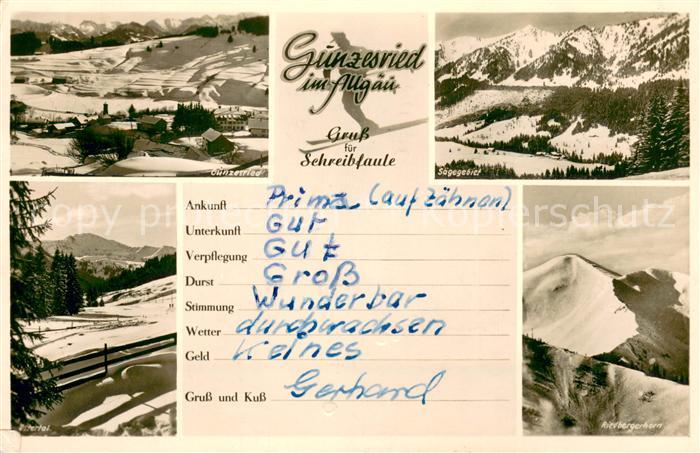 Gunzesried
im Allgäu
Gruß
für
Schreibfaule
Gunzesried
Sägegebiet
Ankunft Prima (auf Zähnen)
Unterkunft Gut
Verpflegung Gut
Durst Groß
Stimmung Wunderbar
Wetter durchwachsen
Geld Keines
Gruß und Kuß Gerhard
Riedbergerhorn